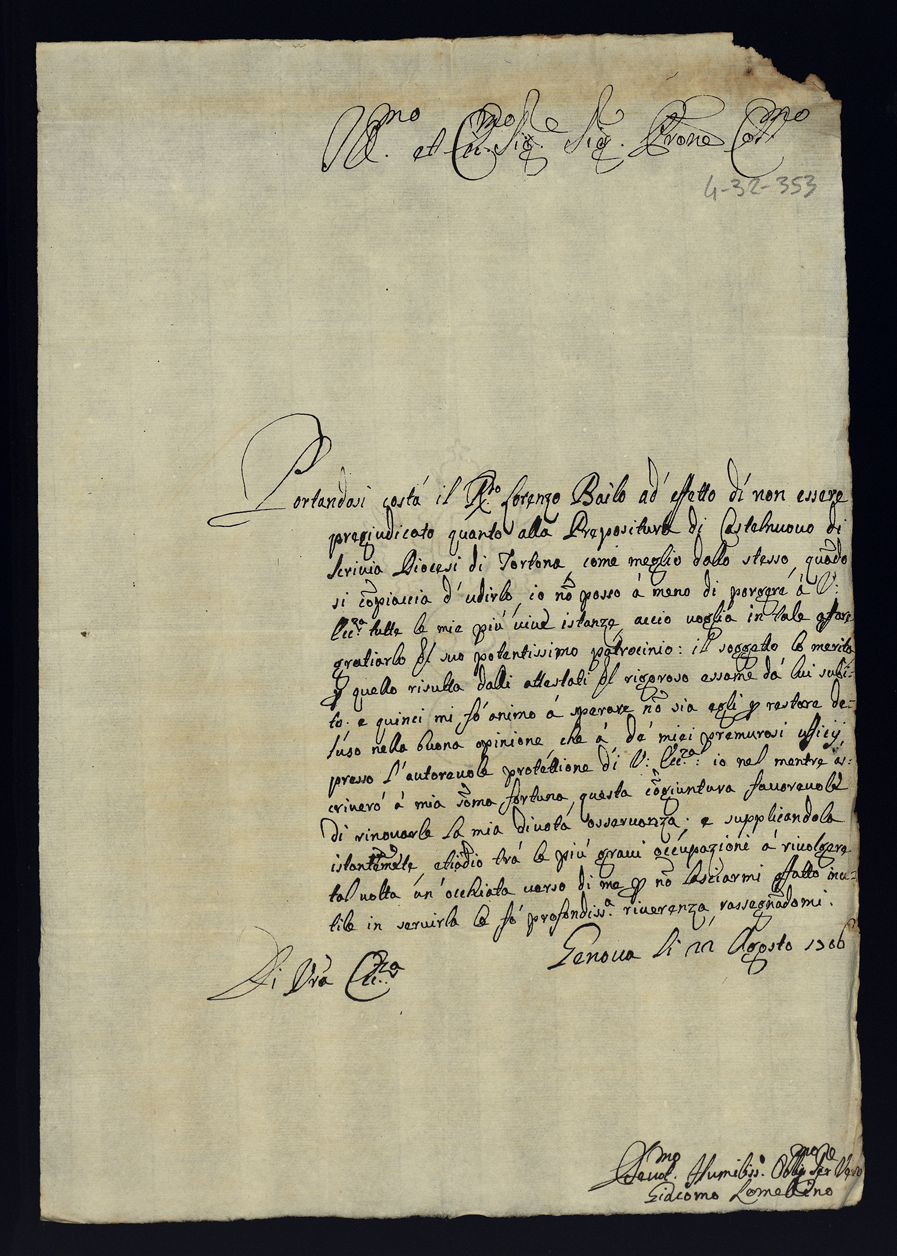 Ill.mo et Ecc.mo Sig.re Sig. Prone Col.mo
4-32-353
Portandosi costá il R.do Lorenzo Bailo ad' effetto di non essere
pregiudicato quanto alla Prepositura di Castelnuovo di
Scrivia Diocesi di Tortona, come meglio dallo stesso, quãdo
si cõpiaccia d'udirlo, io nõ posso á meno di porgere á V:
Ecc.za tutte le mie piú vive istanze, accio voglia in tale affare
gratiarlo del suo potentissimo patrocinio: il soggetto lo merita
p quello risulta dalli attestati del rigoroso essame dá lui subi=
to: e quinci mi fó animo á sperare nõ sia egli p restare de=
luso nella buona opinione, che á de' miei premurosi ufficij
presso l'autorevole protettione di V: Ecc.za: io nel mentre as=
criveró á mia sõma fortuna, questa cõgiuntura favorevole
di rinovarle la mia divota osservanza: e supplicandola
istantemẽte, etiãdio trá le piú gravi occupazioni á rivolgere
tal volta un'occhiata verso di me p nõ lasciarmi affatto inu=
tile in servirla le fó profondiss.a riverenza rassegnãdomi.
Genova li 22 Agosto 1706
Di Vra Ecc.za
Devot.mo Humiliss.o Obblig.mo Ser.re Vero
Giacomo Lomellino